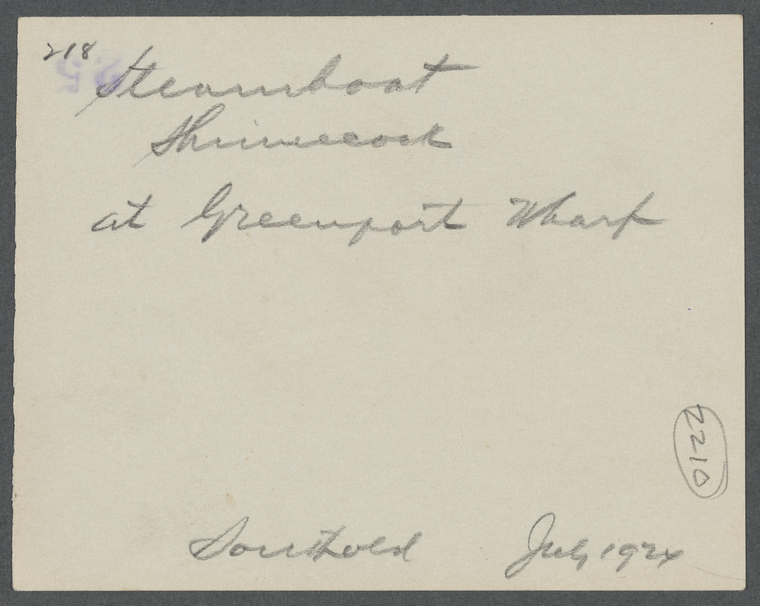 218
Steamboat
Shinnecock
at Greenport Wharf
2210
Southold July 1924